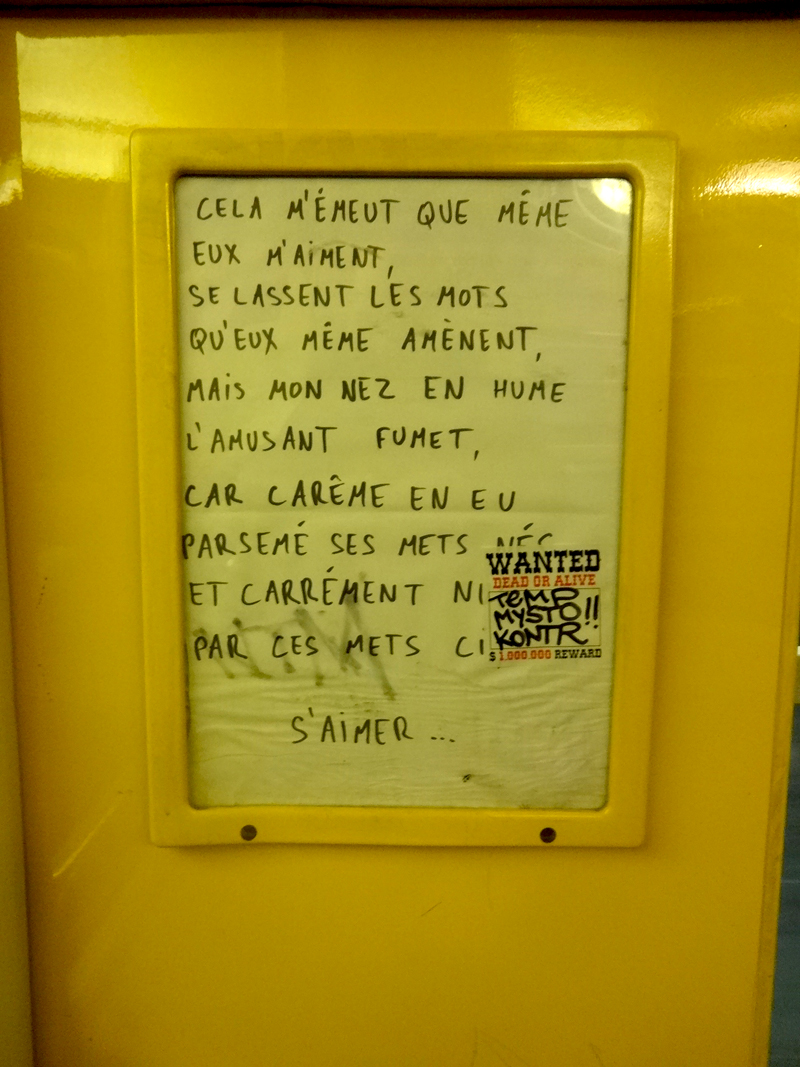 CELA M'ÉMEUT QUE MÊME
EUX M'AiMENT,
SE LASSENT LES MOTS
QU'EUX MÊME AMÈNENT,
MAiS MON NEZ EN HUME
L'AMUSANT FUMET,
CAR CARÊME EN EU
PARSEMÉ SES METS
ET CARRÉMENT
PAR CES METS
S'AiMER ...
WANTED
DEAD OR ALIVE
TEMP
MYSTO!!
KONTR
$1.000.000 REWARD